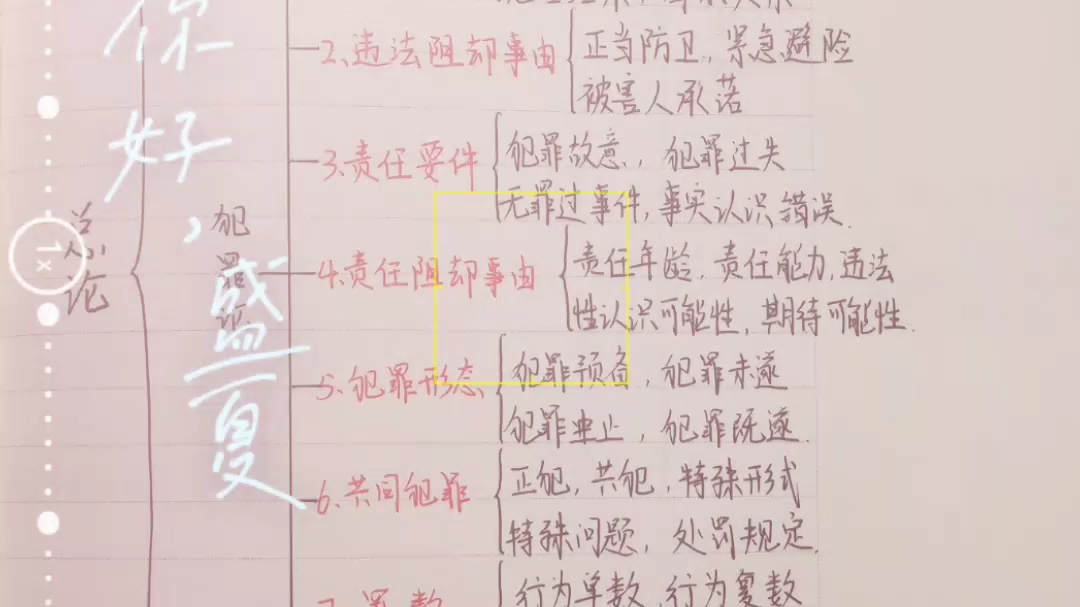 你好，盛夏
总论
犯罪论
2、违法阻却事由
正当防卫，紧急避险
被害人承诺
3、责任要件
犯罪故意，犯罪过失
无罪过事件，事实认识错误.
4、责任阻却事由
责任年龄，责任能力，违法
性认识可能性，期待可能性.
5、犯罪形态
犯罪预备，犯罪未遂
犯罪中止，犯罪既遂.
6、共同犯罪
正犯，共犯，特殊形式
特殊问题，处罚规定.
7、罪数
行为单数，行为复数
1x